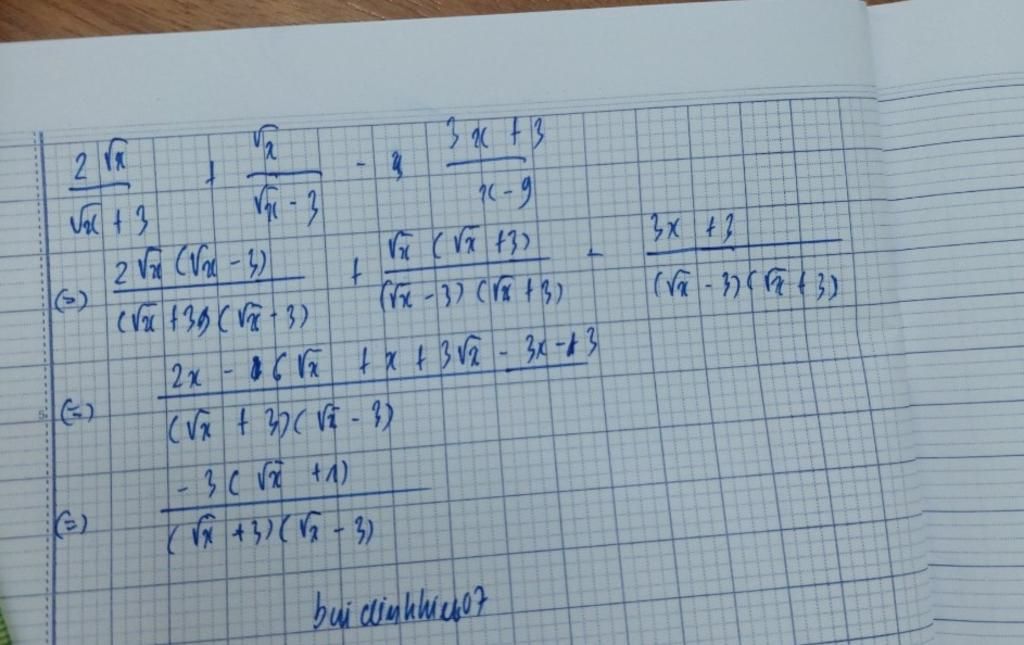 2√x / (√x + 3) + √x / (√x - 3) - (3x + 3) / (x - 9)
(=) 2√x (√x - 3) / (√x + 3)(√x - 3) + √x (√x + 3) / (√x - 3)(√x + 3) - 3x + 3 / (√x - 3)(√x + 3)
(=) 2x - 6√x + x + 3√x - 3x - 3 / (√x + 3)(√x - 3)
(=) -3(√x + 1) / (√x + 3)(√x - 3)